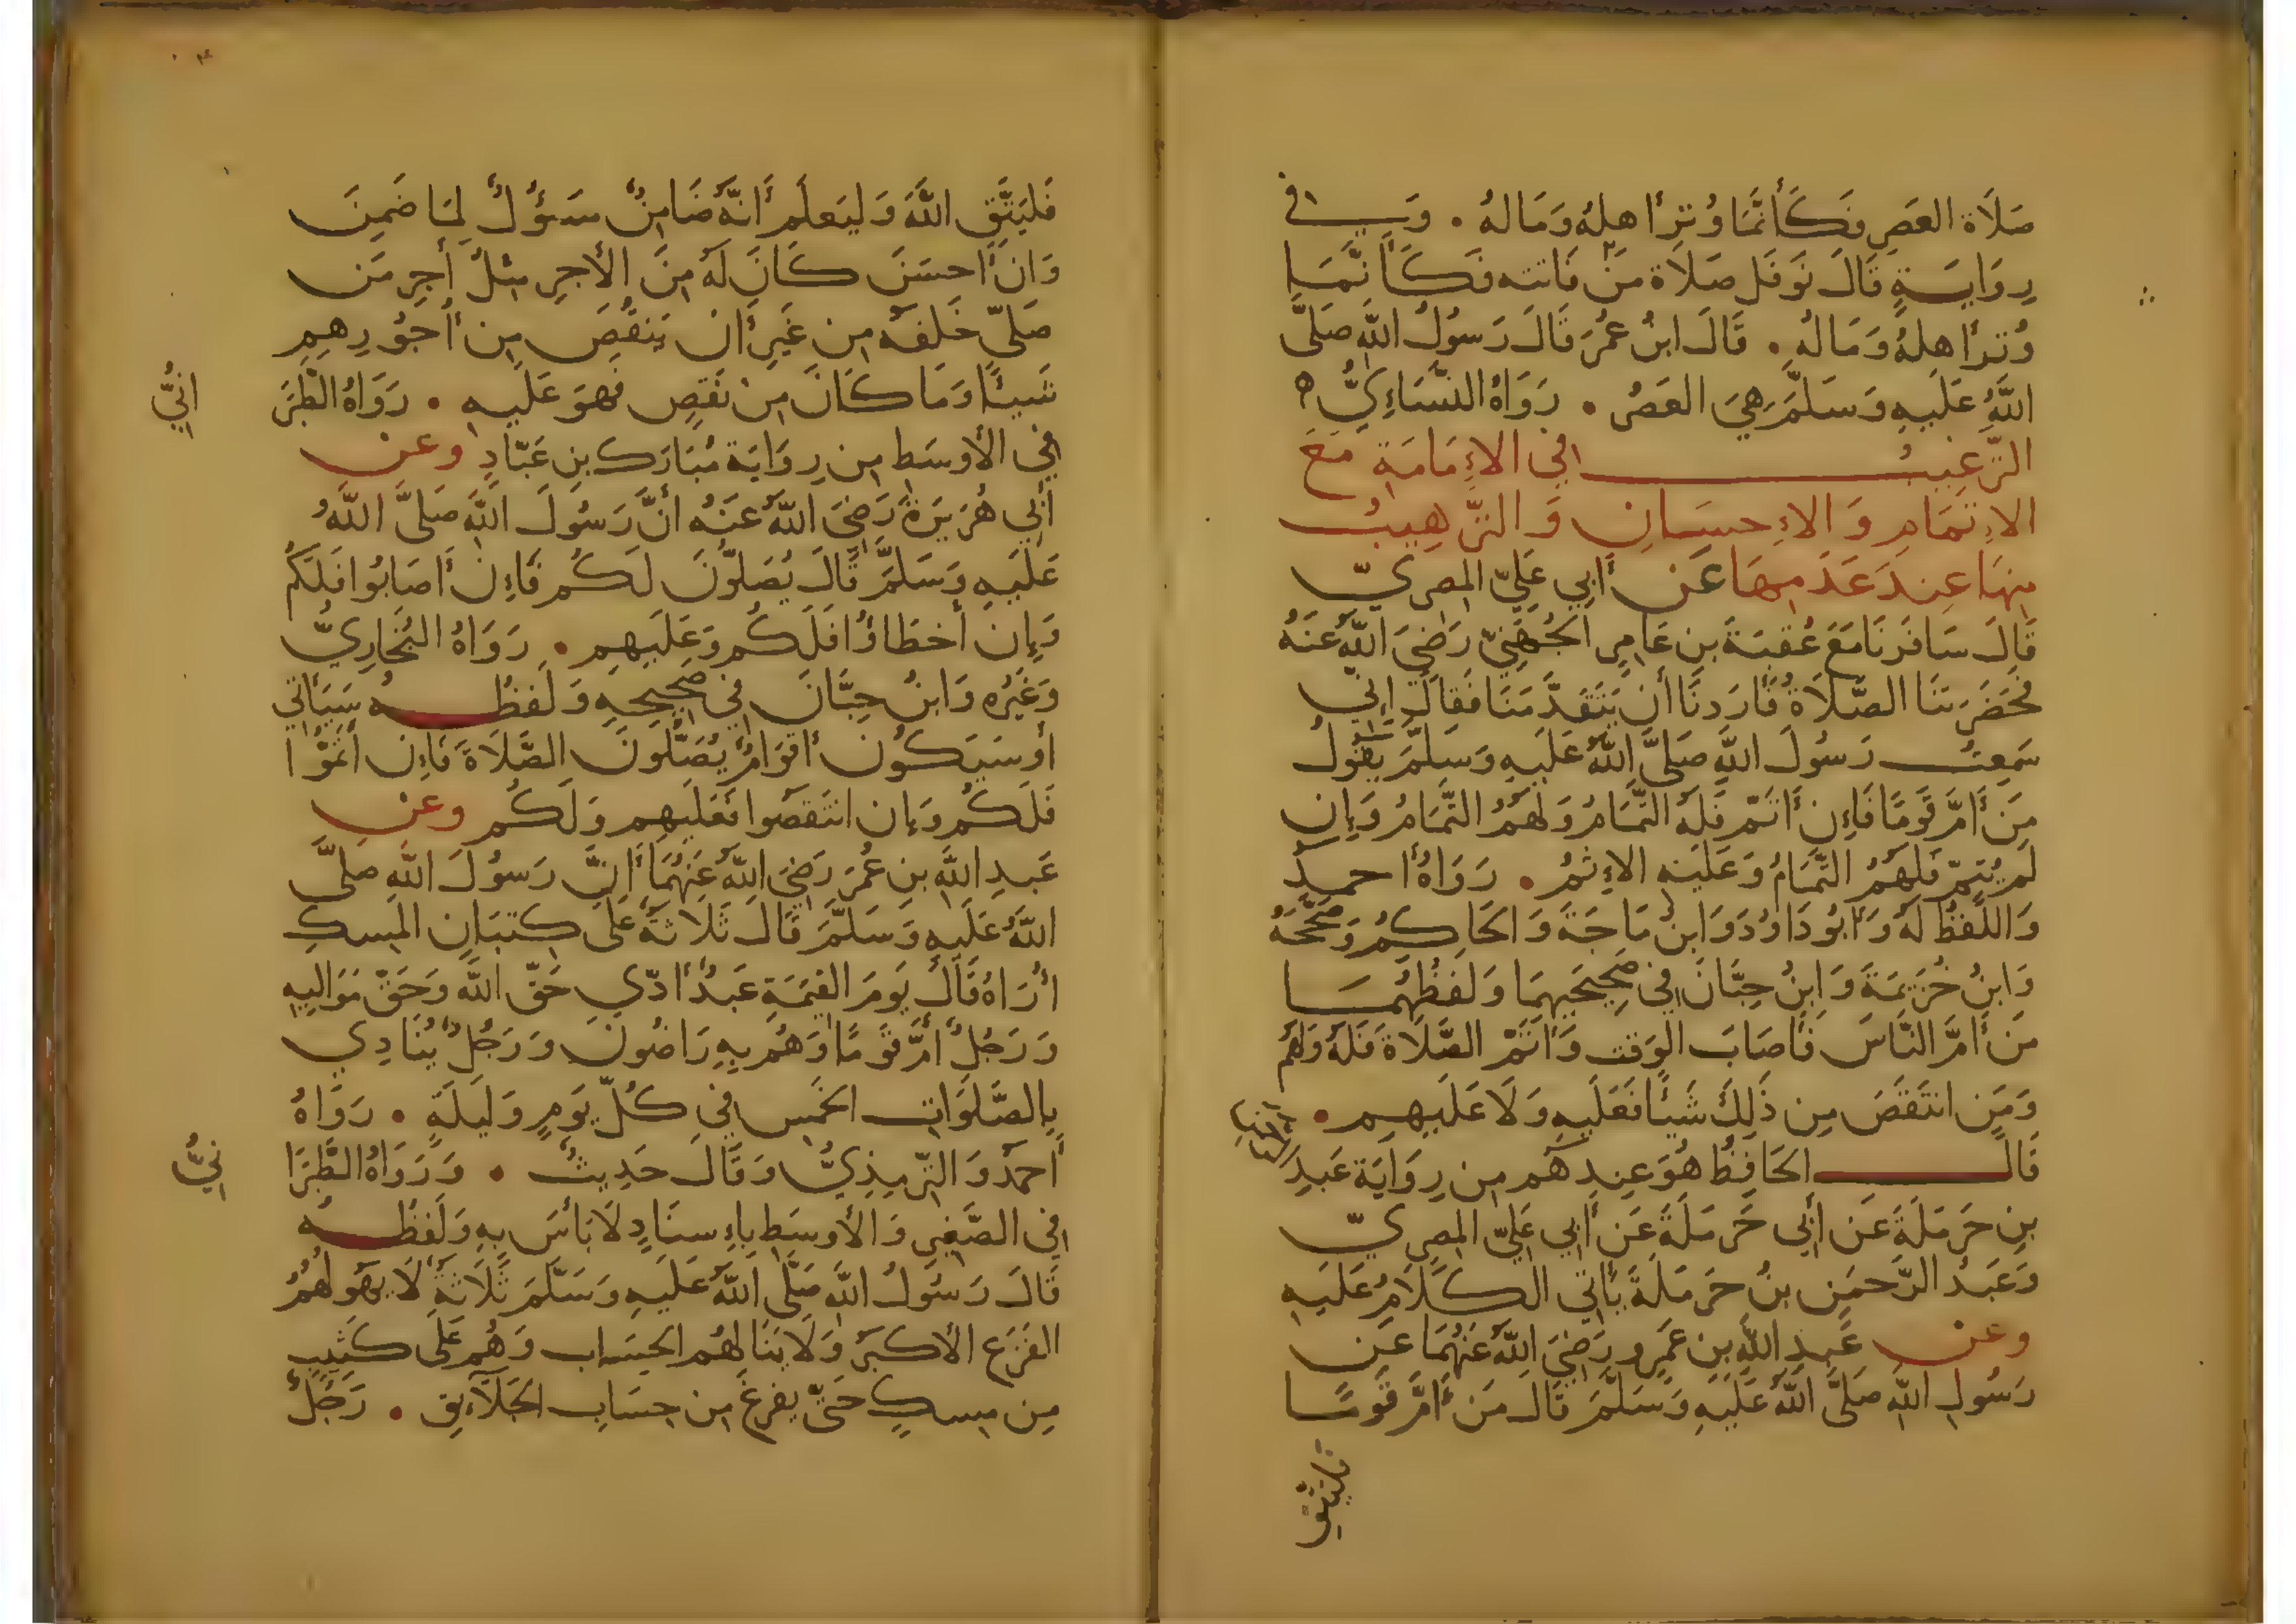 صَلَاة العَصرِ فَكَأَنَّمَا وُتِرَ أَهلهُ وَمَالهُ . وَفي
رِوَايَةٍ قَالَ نَوفَل صَلَاة مَن فَاتته فَكَأَنَّمَا
وُتِرَ أَهلهُ وَمَالهُ . قَالَ ابنُ عُمَرَ قَالَ رَسُولُ اللهِ صَلَّى
اللهُ عَلَيهِ وَسَلَّمَ هِيَ العَصرُ . رَوَاهُ النَّسَاءِيُّ ه
التَّرغِيبُ في الاِمَامَةِ مَعَ
الاِتمَامِ وَالاِحسَانِ وَالتَّرهِيبُ
مِنهَا عِندَ عَدَمِهَا عَن أَبي عَلِيّ المِصرِيّ
قَالَ سَافَرنَا مَعَ عُقبَةَ بنِ عَامِرٍ الجُهَنِيّ رَضِيَ اللهُ عَنهُ
فَحَضَرَتنَا الصَّلَاةُ فَأَرَدنَا أَن يَتَقَدَّمَنَا فَقَالَ إِنّي
سَمِعتُ رَسُولَ اللهِ صَلَّى اللهُ عَلَيهِ وَسَلَّمَ يَقُولُ
مَن أَمَّ قَومًا فَإِن أَتَمَّ فَلَهُ التَّمَامُ وَلَهُمُ التَّمَامُ وَإِن
لَم يُتِمّ فَلَهُمُ التَّمَامُ وَعَلَيهِ الاِثمُ . رَوَاهُ أَحمدُ
وَاللَّفظُ لَهُ وَأَبُو دَاوُدَ وَابنُ مَاجَةَ وَالحَاكِمُ وَصَحَّحَهُ
وَابنُ خُزَيمَةَ وَابنُ حِبَّانَ في صَحِيحَيهِمَا وَلَفظُهُمَا
مَن أَمَّ النَّاسَ فَأَصَابَ الوَقت وَأَتَمَّ الصَّلَاةَ فَلَهُ وَلَهُم
وَمَن انتَقَصَ مِن ذَلِكَ شَيئًا فَعَلَيهِ وَلَا عَلَيهِم .
قَالَ الحَافِظُ هُوَ عِندهُم مِن رِوَايَة عَبدِ
بنِ حَرمَلَةَ عَن أَبي حَرمَلَةَ عَن أَبي عَلِيّ المِصرِيّ
وَعَبدُ الرَّحمَنِ بنُ حَرمَلَةَ يَأتي الكَلَامُ عَلَيهِ
وعن عَبدِ اللهِ بنِ عَمرٍو رَضِيَ اللهُ عَنهُمَا عَن
رَسُولِ اللهِ صَلَّى اللهُ عَلَيهِ وَسَلَّمَ قَالَ مَن أَمَّ قَومًا
فَليَتَّقِ
فَليَتَّقِ اللهَ وَليَعلَم أَنَّهُ ضَامِنٌ مسَؤُلٌ لِمَا ضَمِنَ
وَان أَحسَنَ كَانَ لَهُ مِنَ الأَجرِ مِثلُ أَجرِ مَن
صَلَّى خَلفَه مِن غَيرِ أَن يَنقُصَ مِن أُجُورِهِم
شَيئًا وَمَا كَانَ مِن نَقصٍ فَهوَ عَلَيهِ . رَوَاهُ الطَّبَرَ
انِيُّ
في الأَوسَطِ مِن رِوَايَة مُبَارَك بنِ عَبَّادٍ وعن
أَبي هُرَيرَةَ رَضِيَ اللهُ عَنهُ أَنَّ رَسُولَ اللهِ صَلَّى اللهُ
عَلَيهِ وَسَلَّمَ قَالَ يُصَلُّونَ لَكُم فَإِن أَصَابُوا فَلَكُم
وَإِن أَخطَاؤُا فَلَكُم وَعَلَيهِم . رَوَاهُ البُخَارِيُّ
وَغَيرُه وَابنُ حِبَّانَ في صَحِيحِهِ وَلَفظُهُ سَيَأتي
أَو سَيَكُون أَقوَامٌ يُصَلُّونَ الصَّلَاةَ فَإِن أَتَمُّوا
فَلَكُم وَإِن انتَقَصُوا فَعَلَيهِم وَلَكُم وعن
عَبدِ اللهِ بنِ عُمَرَ رَضِيَ اللهُ عَنهُمَا أَنَّ رَسُولَ اللهِ صَلَّى
اللهُ عَلَيهِ وَسَلَّمَ قَالَ ثَلَاثَةٌ عَلَى كثبَانِ المِسكِ
أُرَاهُ قَالَ يَومَ القِيمَةِ عَبدٌ أَدّي حَقّ اللهِ وَحَقّ مَوَاليهِ
وَرَجُلٌ أَمَّ قَومًا وَهُم بِهِ رَاضُونَ وَرَجُلٌ يُنَادِي
بِالصَّلَوَاتِ الخَمسِ في كُلّ يَومٍ وَلَيلَةٍ . رَوَاهُ
أَحمَدُ وَالتِّرمِذِيُّ وَقَالَ حَدِيثٌ . وَرَوَاهُ الطَّبَرَا
نِيُّ
في الصَّغِيرِ وَالأَوسَطِ بِاِسنَادٍ لَا بَأسَ بِهِ وَلَفظُهُ
قَالَ رَسُولُ اللهِ صَلَّى اللهُ عَلَيهِ وَسَلَّمَ ثَلَاثَةٌ لَا يَهولهُمُ
الفَزَع الأَكبَرُ وَلَا يَنَالهُم الحِسَاب وَهُم عَلَى كَثِيبٍ
مِن مِسكٍ حَتَّى يفرغَ مِن حِسَابِ الخَلَآيِقِ . رَجُلٌ